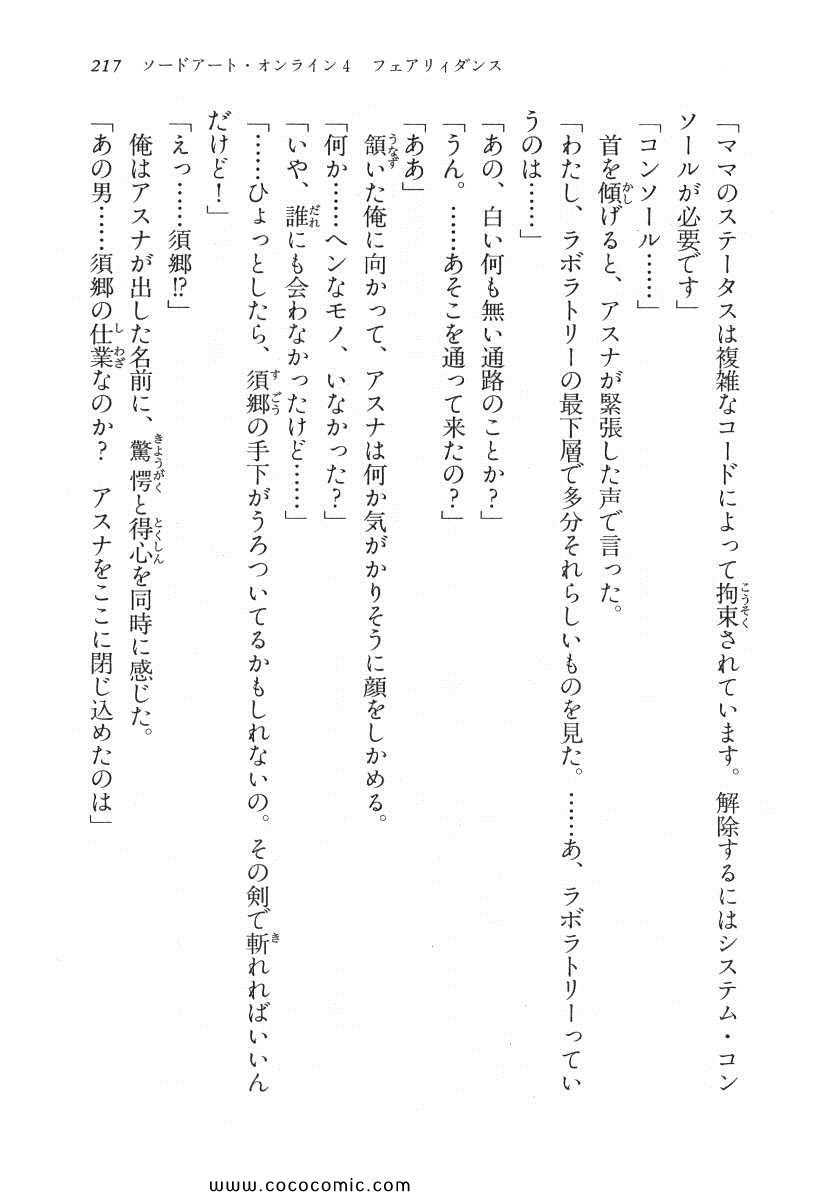 217 ソードアート・オンライン4 フェアリィダンス
「ママのステータスは複雑なコードによって拘束されています。解除するにはシステム・コン
ソールが必要です」
「コンソール……」
首を傾げると、アスナが緊張した声で言った。
「わたし、ラボラトリーの最下層で多分それらしいものを見た。……あ、ラボラトリーってい
うのは……」
「あの、白い何も無い通路のことか？」
「うん。……あそこを通って来たの？」
「ああ」
頷いた俺に向かって、アスナは何か気がかりそうに顔をしかめる。
「何か……ヘンなモノ、いなかった？」
「いや、誰にも会わなかったけど……」
「……ひょっとしたら、須郷の手下がうろついてるかもしれないの。その剣で斬れればいいん
だけど！」
「えっ……須郷!?」
俺はアスナが出した名前に、驚愕と得心を同時に感じた。
「あの男……須郷の仕業なのか？　アスナをここに閉じ込めたのは」
www.cococomic.com